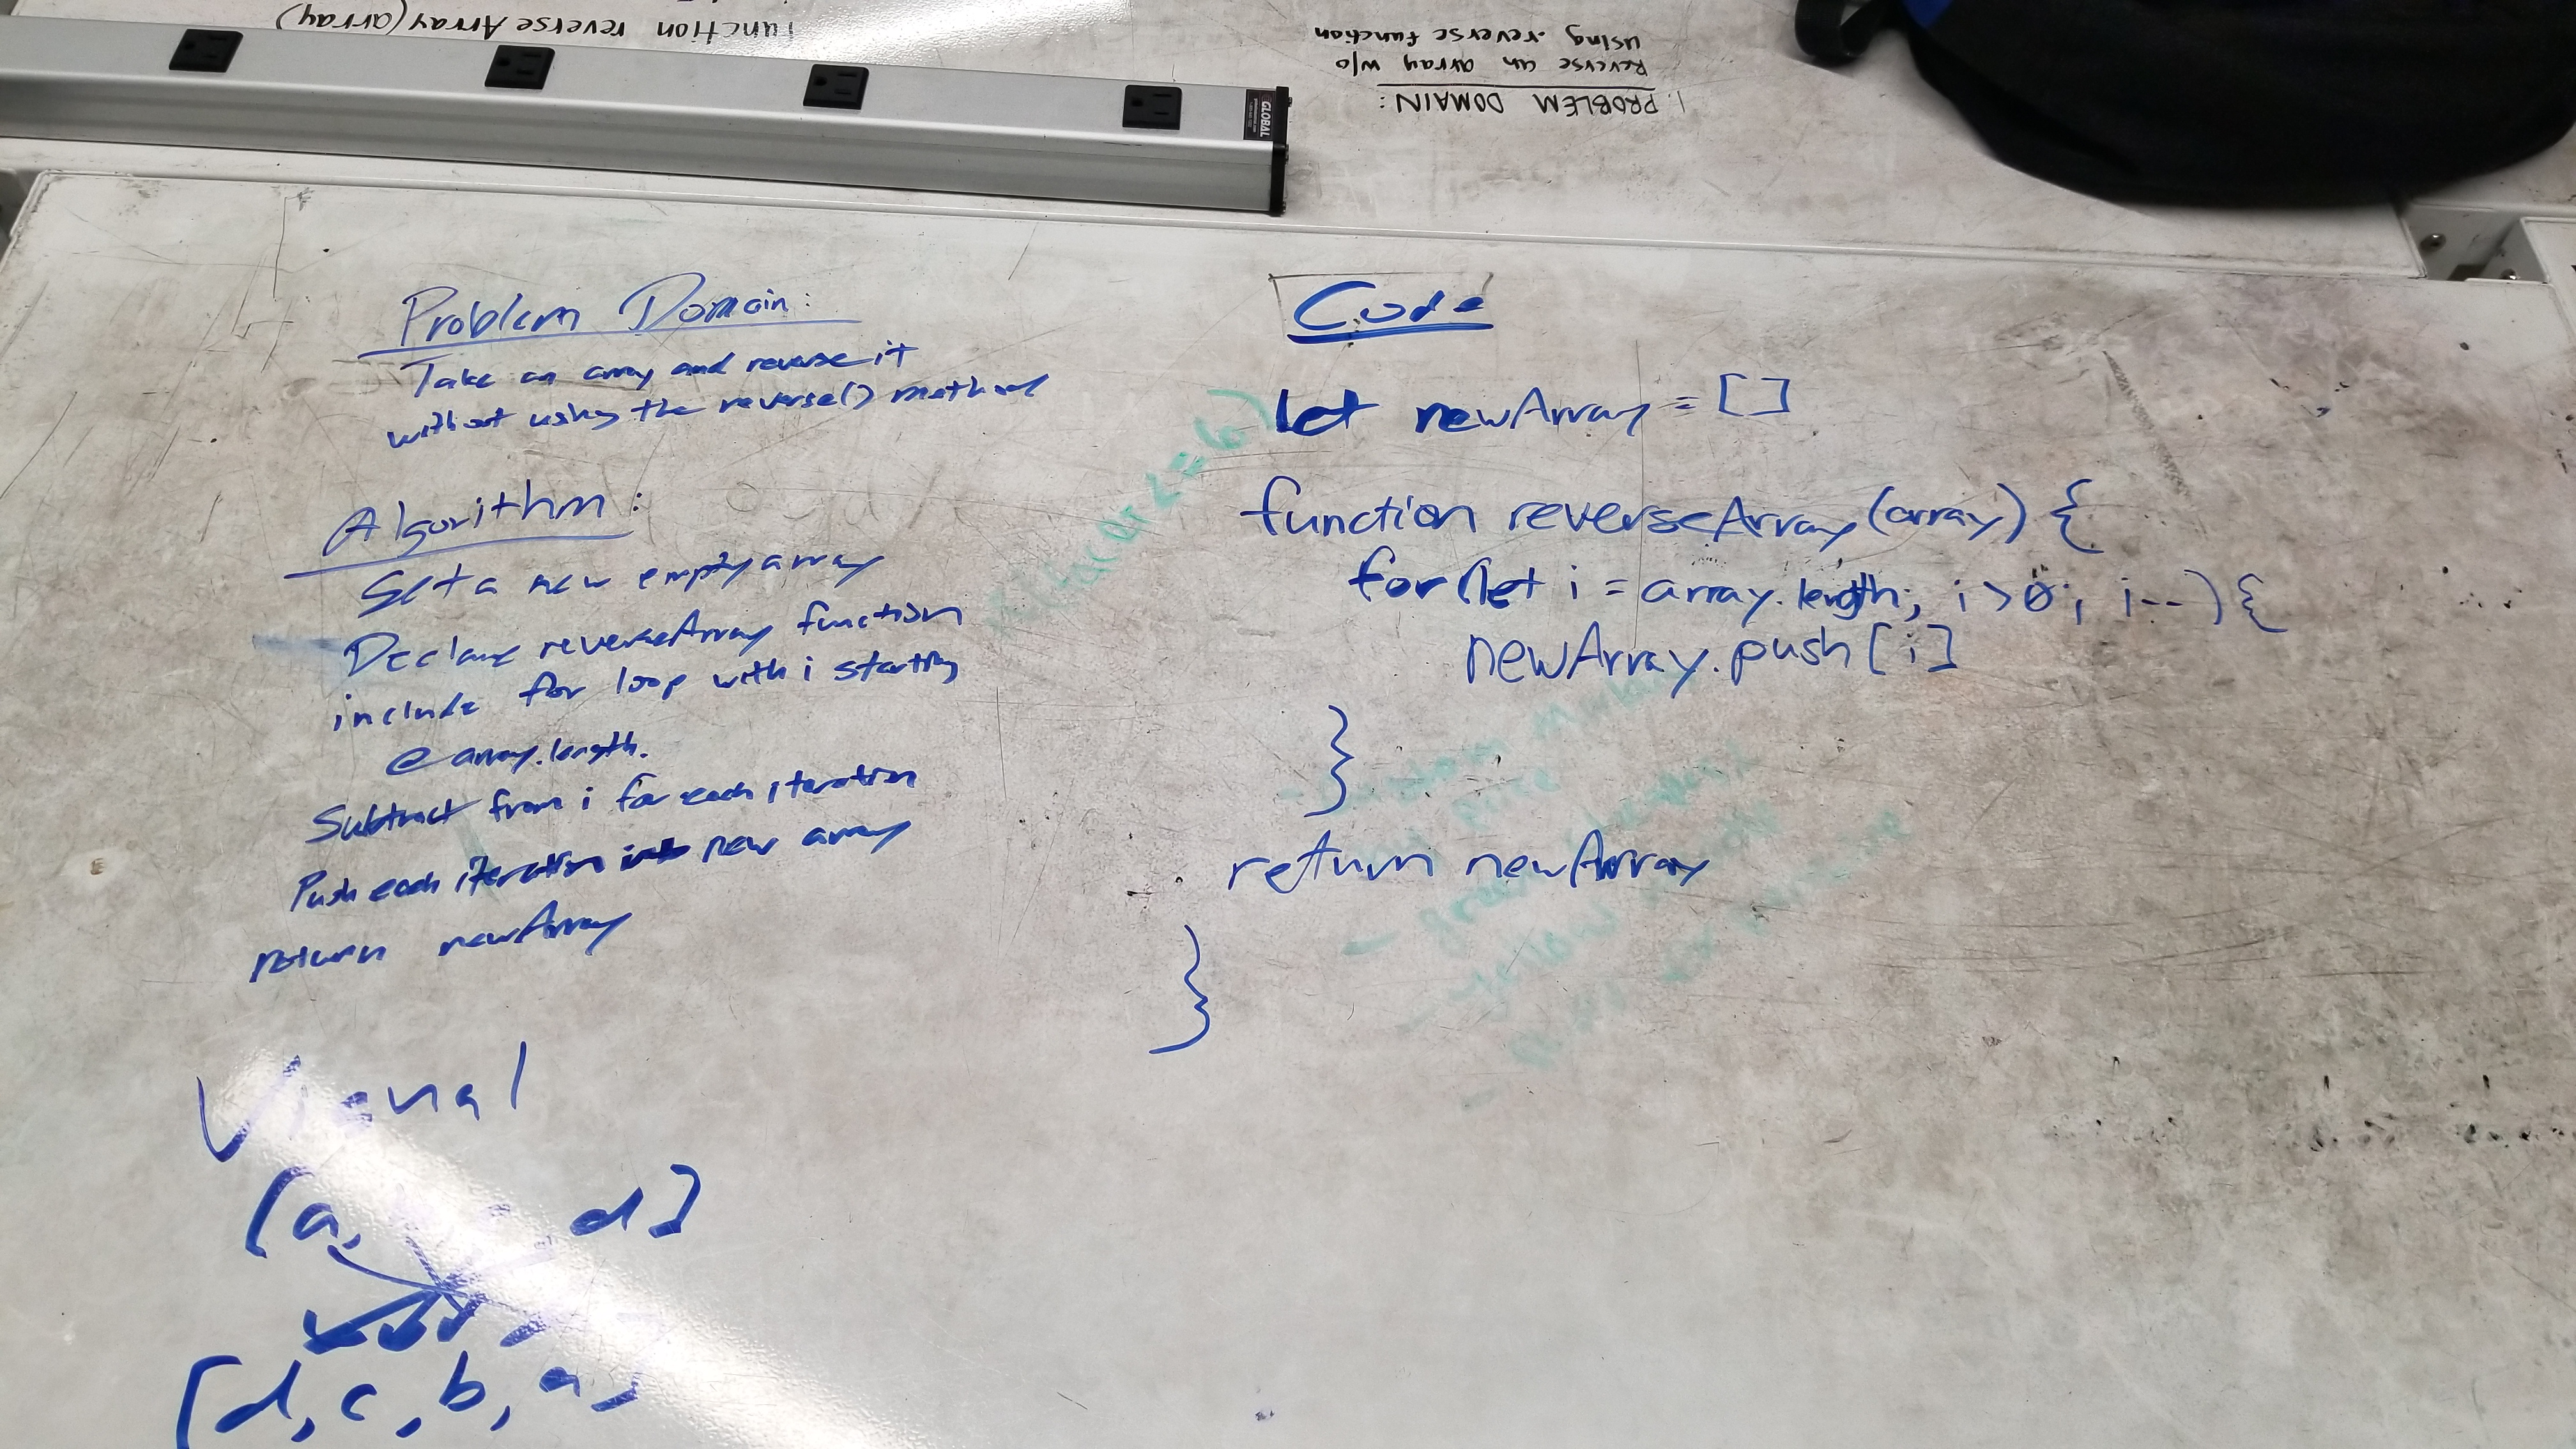 function reverse Array(array)
1. PROBLEM DOMAIN:
Reverse an array w/o
using .reverse function
GLOBAL
Problem Domain:
Take an array and reverse it
without using the reverse() method
Algorithm:
Set a new empty array
Declare reverseArray function
include for loop with i starting
@ array.length.
Subtract from i for each iteration
Push each iteration into new array
return newArray
Visual
[a, d]
[d, c, b, a,
Code
let newArray = []
function reverseArray(array) {
for(let i = array.length; i > 0; i--) {
newArray.push[i]
}
return newArray
}